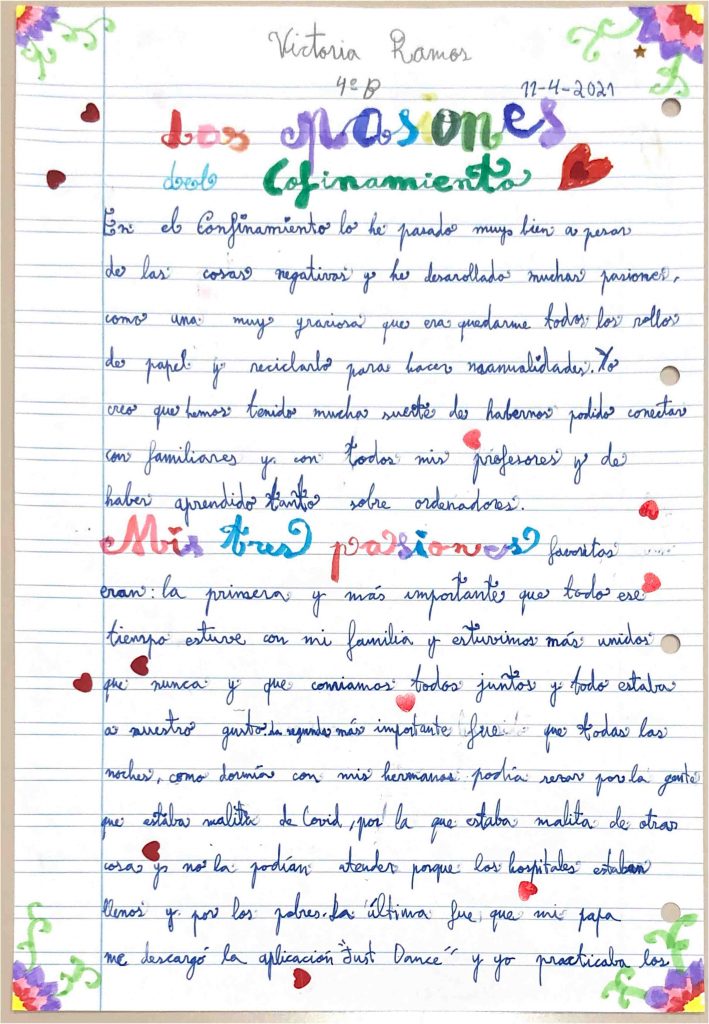 Victoria Ramos
4º B 11-4-2021
Las Pasiones
del Cofinamiento
En el Confinamiento lo he pasado muy bien a pesar
de las cosas negativas y he desarollado muchas pasiones,
como una muy graciosa que era quedarme todos los rollos
de papel y reciclarlo para hacer manualidades. Yo
creo que hemos tenido mucha suerte de habernos podido conectar
con familiares y con todos mis profesores y de
haber aprendido tanto sobre ordenadores.
Mis tres pasiones favoritas
eran: la primera y más importante que todo ese
tiempo estuve con mi familia y estuvimos más unidos
que nunca y que comiamos todos juntos y todo estaba
a nuestro gusto. La segunda más importante fue que todas las
noches, como dormía con mis hermanos podía rezar por la gente
que estaba malita de Covid, por la que estaba malita de otras
cosa y no la podían atender porque los hospitales estaban
llenos y por los pobres. La última fue que mi papa
me descargó la aplicación "Just Dance" y yo practicaba los